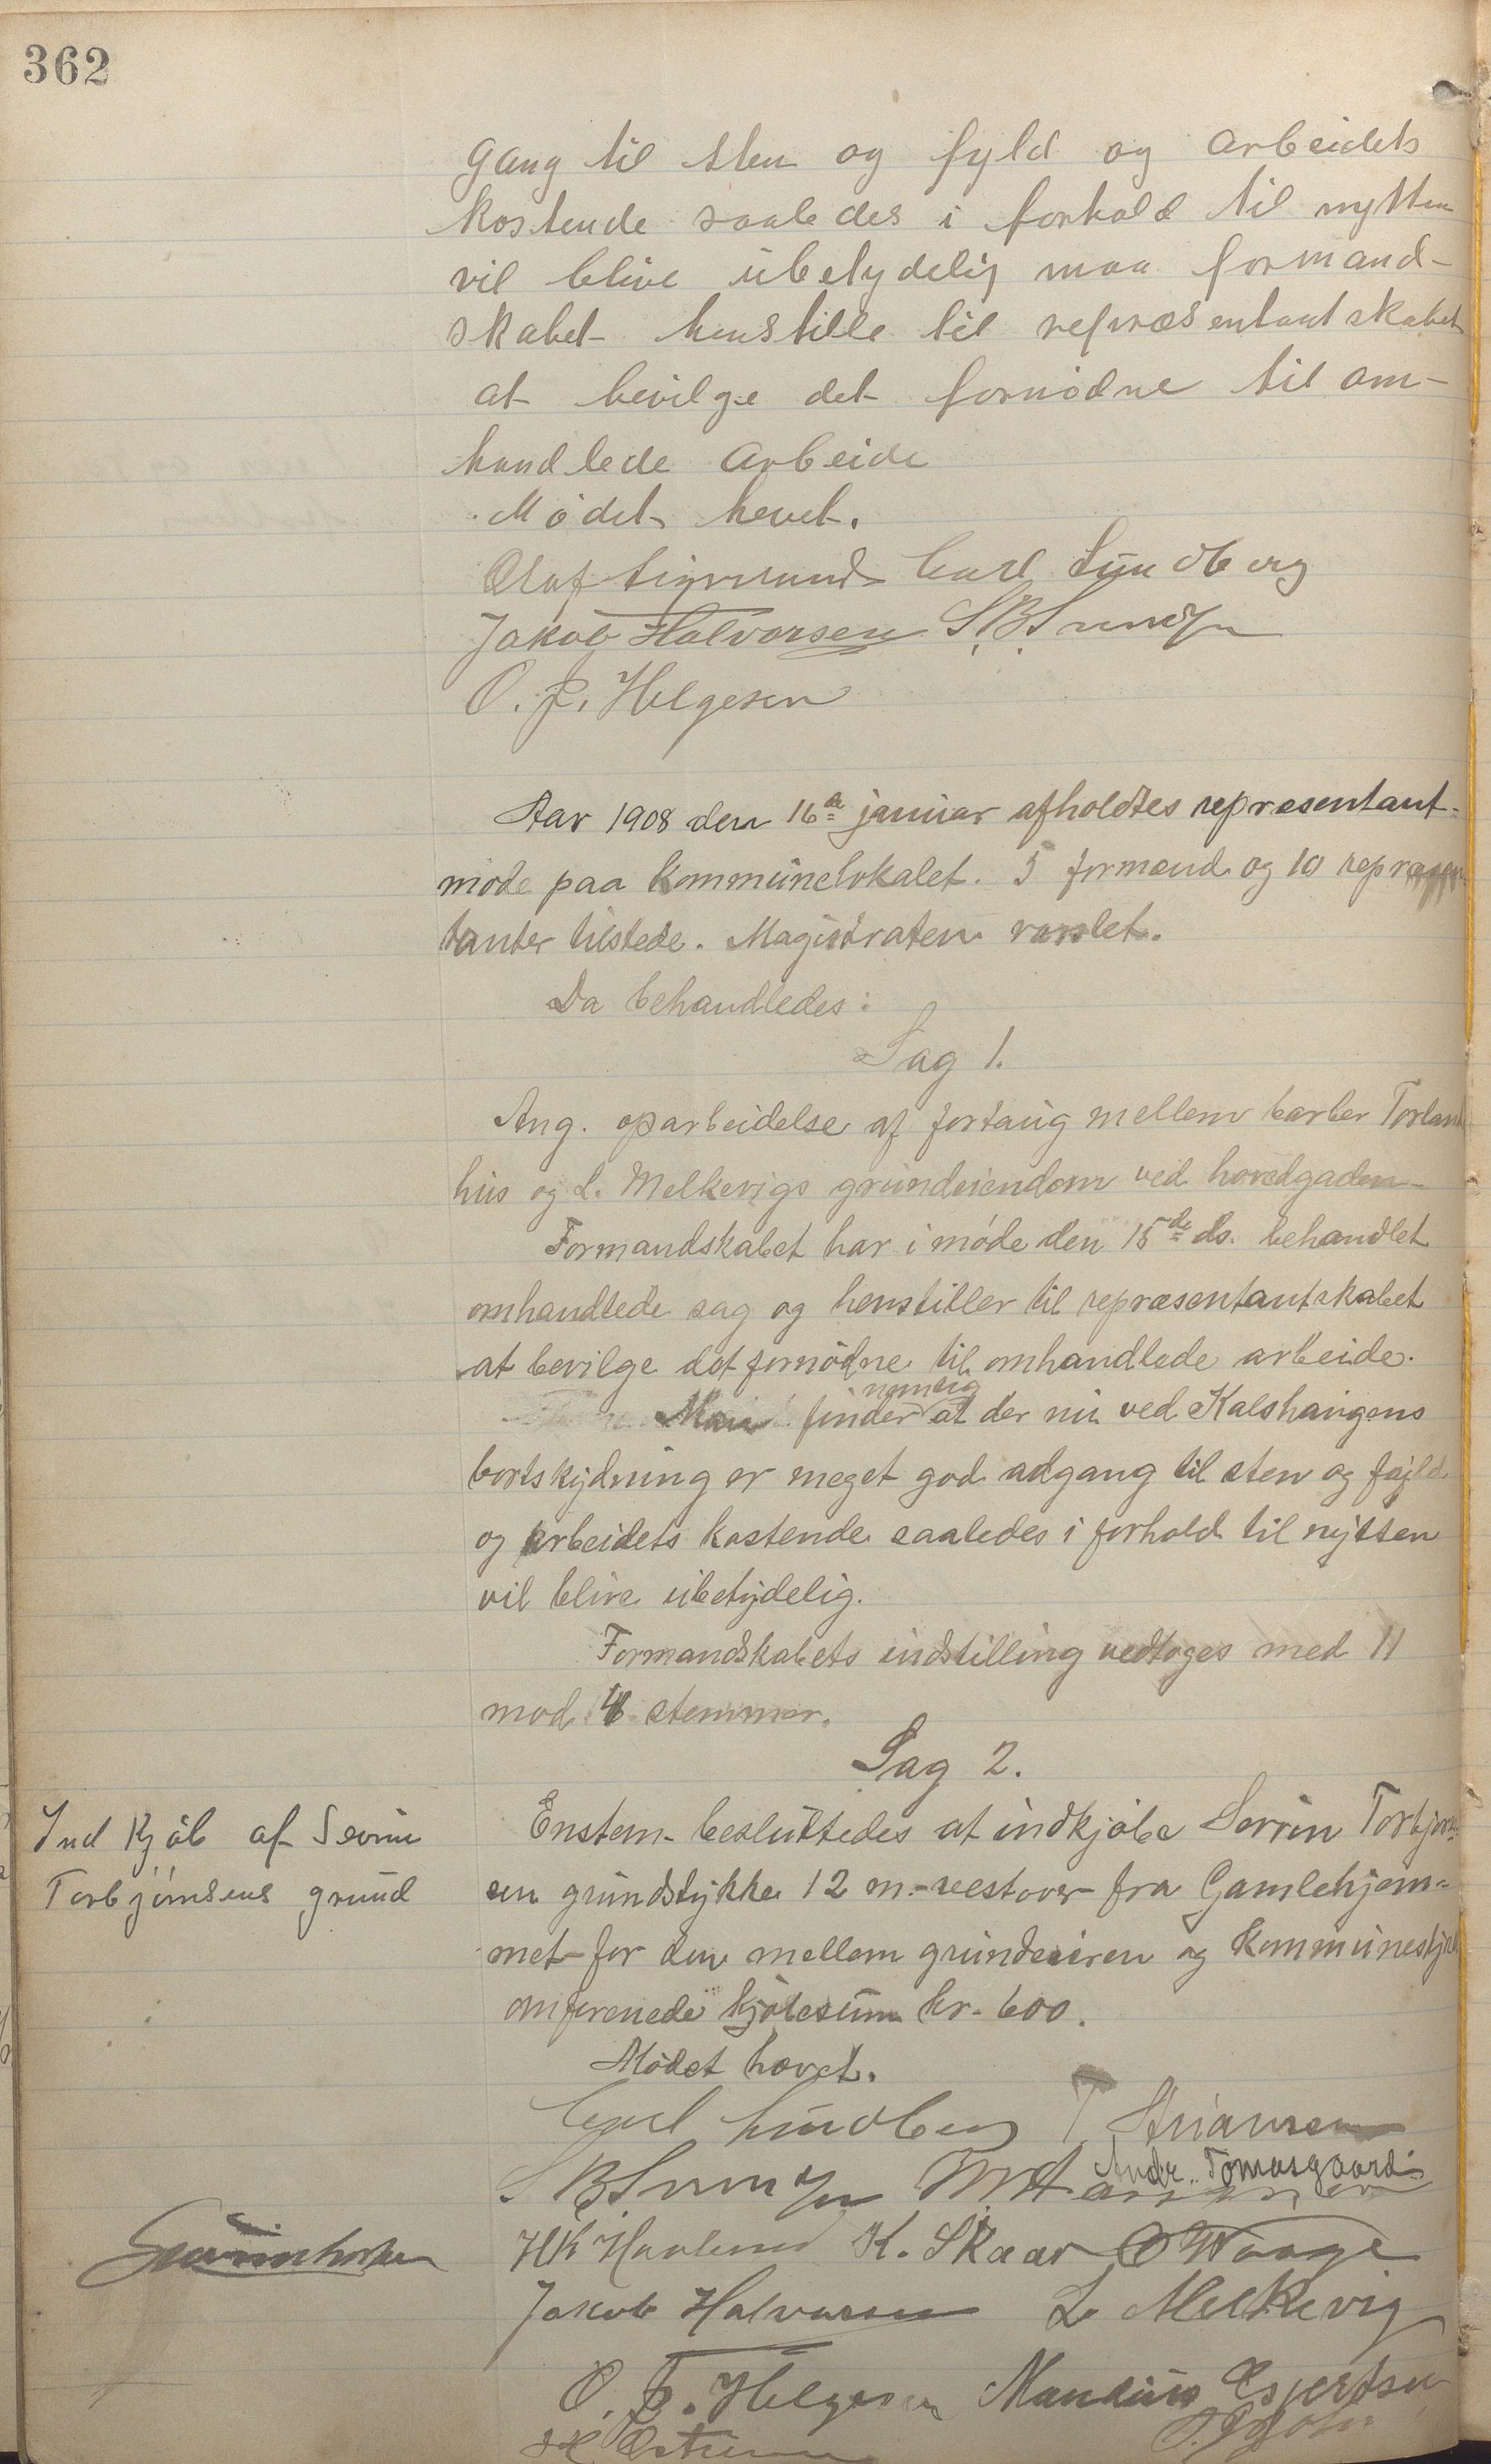 362
gang til sten og fyld og arbeidets
kostende saaledes i forhold til nytten
vil blive ubetydelig maa formand-
skabet henstille til repræsentantskabet
at bevilge det fornødne til om-
handlede arbeide
Mødet hevet.
Olaf Sigmund Carl Lundberg
Jakob Halvorsen S. B.
O. J. Helgesen
Aar 1908 den 16de januar afholdtes repræsentant-
møde paa kommunelokalet. 5 formænd og 10 repræsen
tanter tilstede. Magistraten varslet.
Da behandledes:
Sag 1.
Ang. oparbeidelse af fortaug mellem barber Torland
hus og L. Melkevigs grundeiendom ved hovedgaden-
Formandskabet har i møde den 15de ds. behandlet
omhandlede sag og henstiller til repræsentantskabet
at bevilge det fornødne til omhandlede arbeide.
nemlig
Man finder at der nu ved Kalshaugens
bortskydning er meget god adgang til sten og fyld
og arbeidets kostende saaledes i forhold til nytten
vil blive ubetydelig.
Formandskabets indstilling vedtoges med 11
mod 4 stemmer.
Sag 2.
Ind kjøb af Sevrin
Torbjørnsens grund
Enstem. besluttedes at indkjøbe Sevrin Torbjørn-
sen grundstykke 12 m. vestover fra Gamlehjem-
met for den mellem grundeieren og kommunestyret
omforenede kjøbesum kr. 600.
Mødet hævet.
Carl Lundberg T. Stiansen
S B Andr. Tomasgaard
H K K. Skaar O Waage
Jakob Halvorsen L. Melkevig
O. J. Helgesen Mandius Espertsen